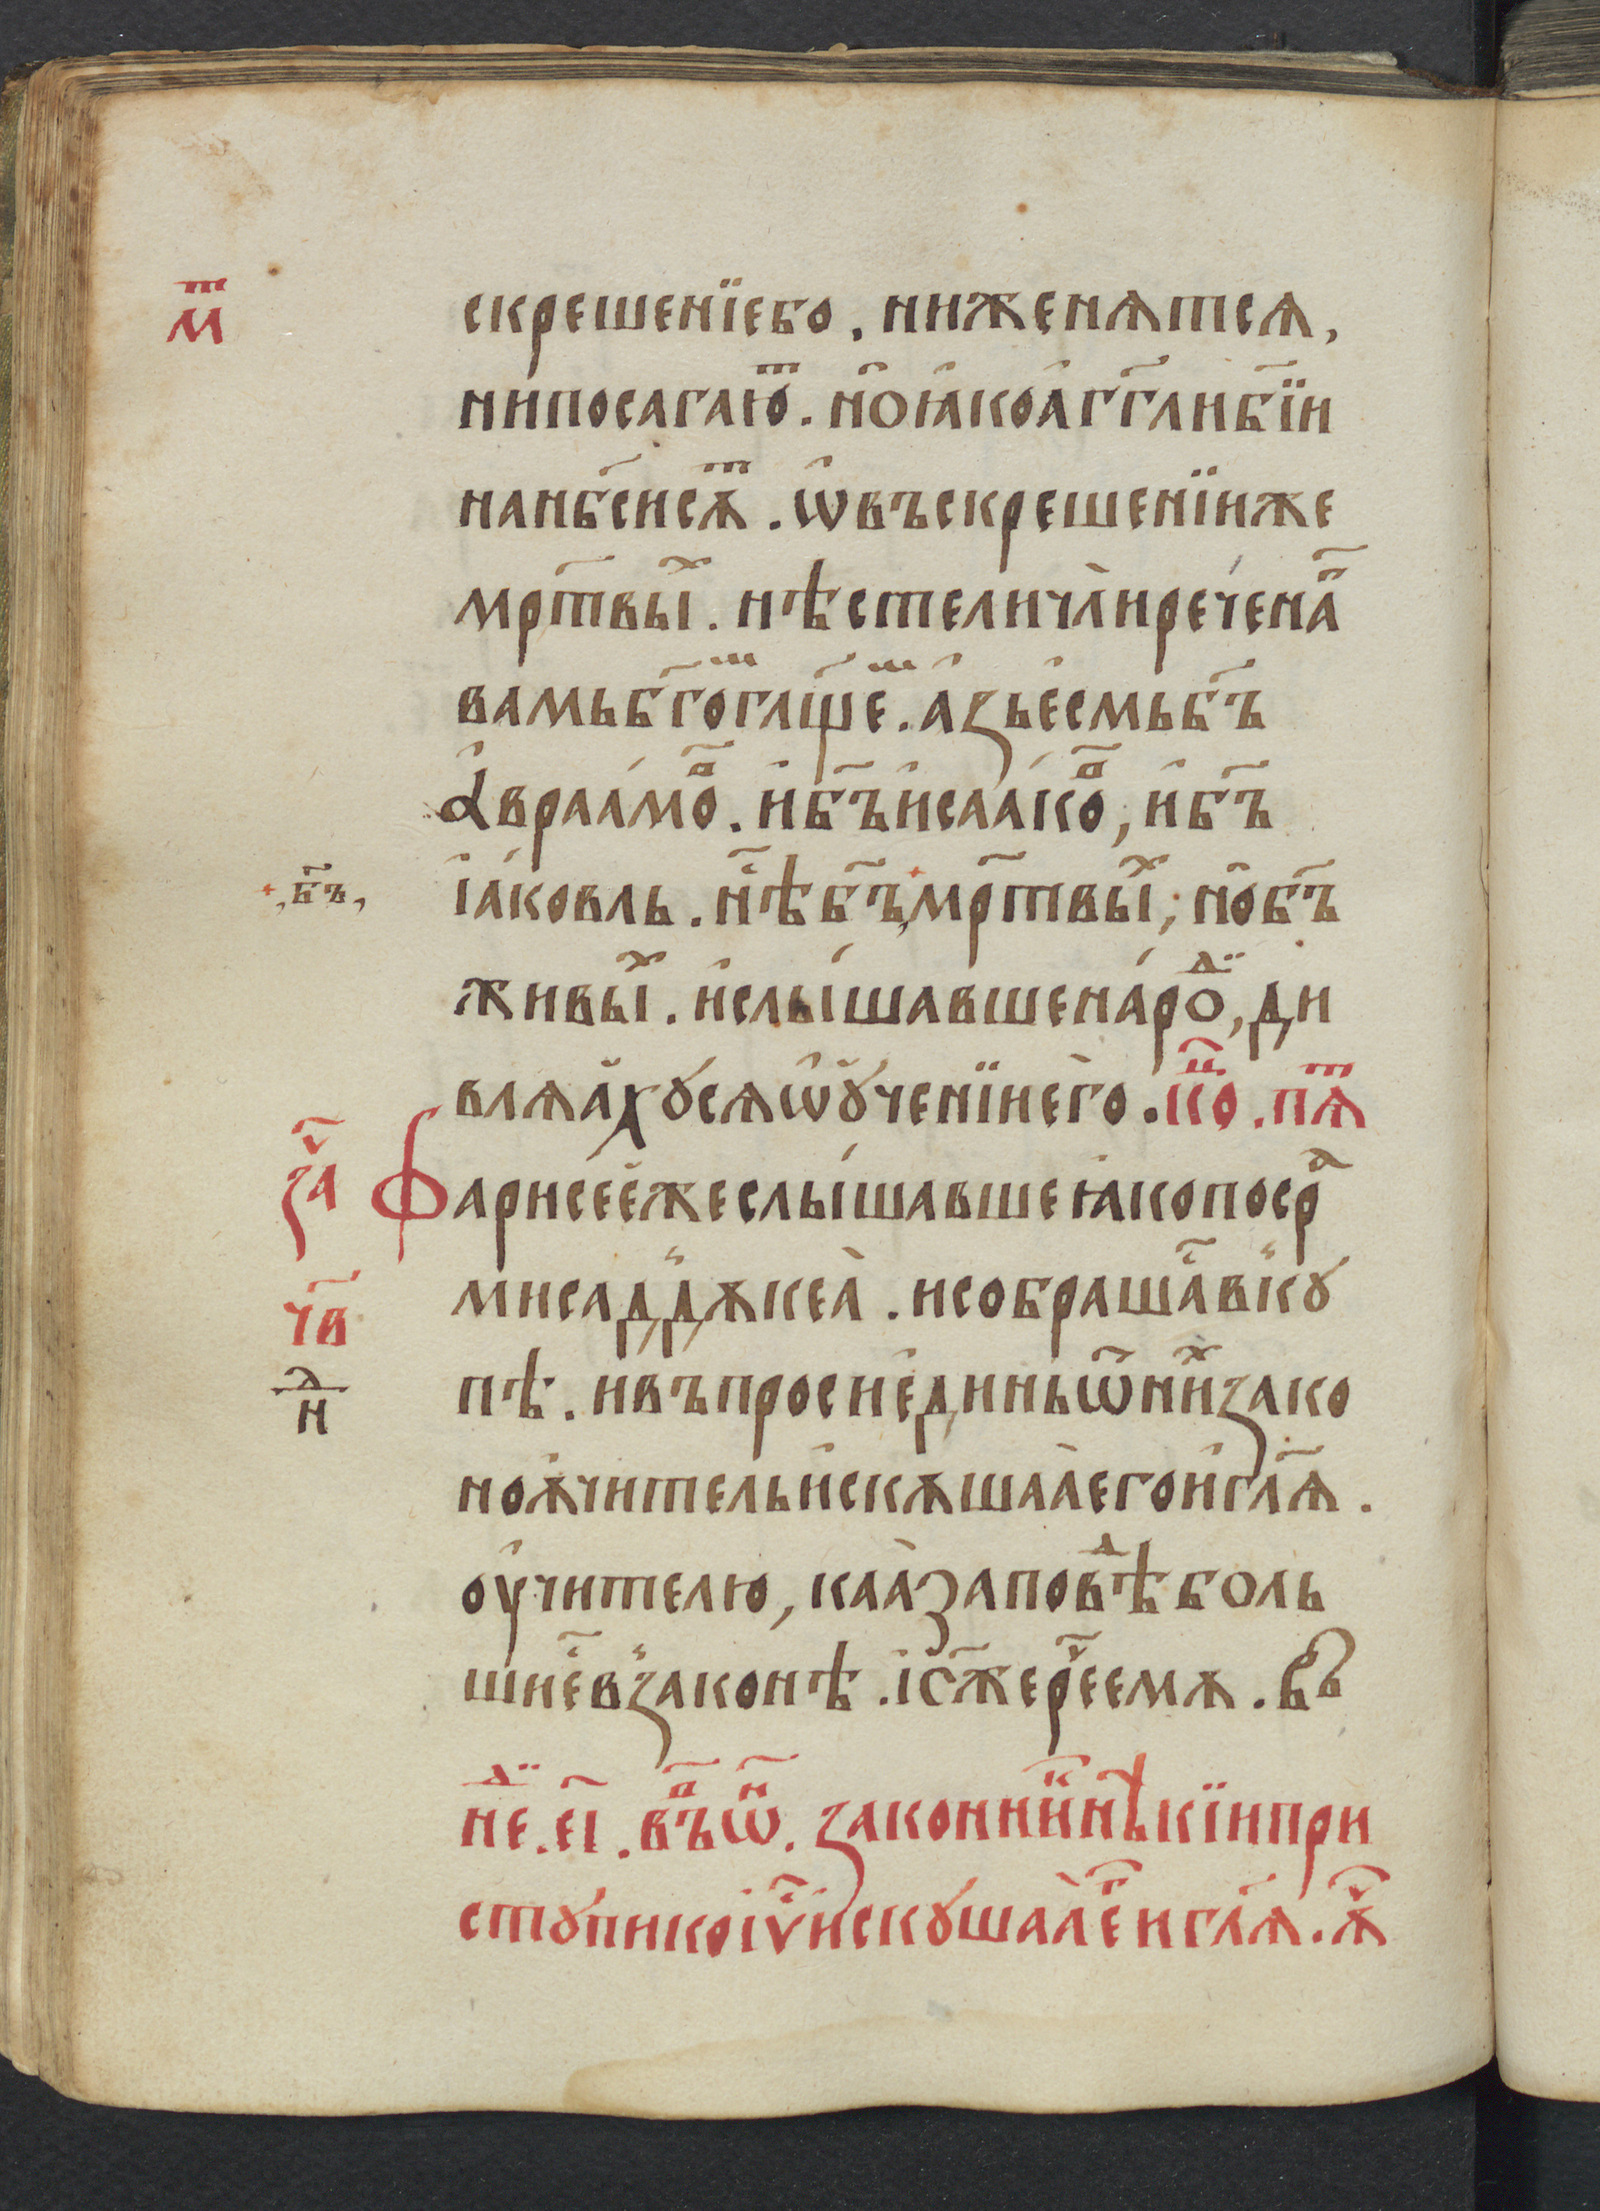 м҃ⷮ
скрешенїебо. ниженѧтсѧ,
нипосагаюⷮ. но̑ꙗкоа҆гг҃либ҃їи
нанб҃сисѫⷮ. ѡ҆въскрешенїиже
мр҃твыⷯ. нѣстеличлѝрече́наⷩ҇
вамьбг҃ѡⷨгл҃ѱе. а҆ꙁье҆смьб҃ъ
а҆враа́моⷡ҇. и҆б҃ъи҆саа́коⷡ҇, и҆б҃ъ
+,б҃ъ,
і҆а́ковль. нⷭ҇ѣб҃ъ,мр҃твыⷯ; но̑б҃ъ
живыⷯ. и҆слы́шавшена́роⷣ, ди
влѧа҆́хꙋсѧѡ҆ꙋ҆ченїиего̀. коⷰ҇. пѧⷮ
зⷱ҇а
Фарисее́жеслы́шавшеꙗкопосраⷨ
ч҃в
мисаддꙋ́кеа̀. исобрашаⷭ҇вкꙋ
л҃
н
пѣ. ивъпросиє҆диньѿниⷯꙁако
ноѫ҆чительи҆скѫшаа̀егои҆гл҃ѧ.
оу҆чителю, каа̀ꙁаповⷣѣболь
шиеⷭ҇вꙁаконѣ. і҆с҃жереⷱ҇емѫ. въ
неⷣ. е҃і. въⷡ҇ѡⷩ҇. ꙁаконниⷦ҇нѣ́кїипри
стꙋпикоіⷭ҇ѵ҆искꙋшаа̀еⷢ҇игл҃ѧ. ѫⷱ҇